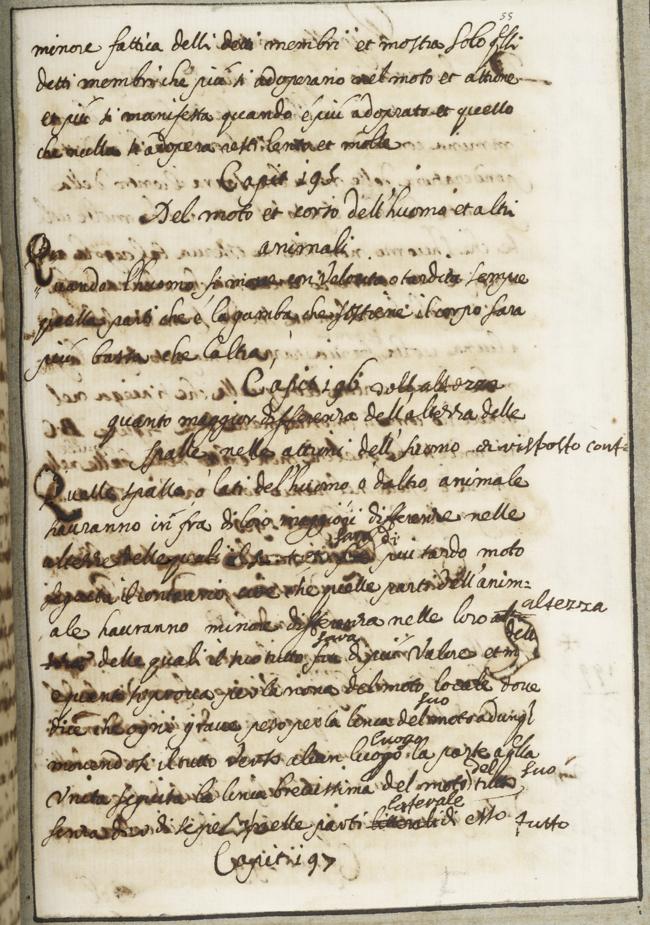 55
minore fattica delli detti membri et mostra solo
detti membri che più si adoperano nel moto et attione
et più si manifesta quando è più adoprato et quello
che nulla si adopera resti lento et molle
Capit 195
Del moto et corso dell'huomo et altri
animali
Quando l'huomo si move con velocita o tardita sempre
quella parti che è la gamba che sostiene il corpo sara
più bassa che l'altra
Capit 196
quanto maggior differenza dell'altezza delle
spalle nelle attioni dell'huomo
Quelle spalle o lati del'huomo o d'altro animale
hauranno in fra di loro maggiori differenze nelle
altezze delle quali il sara di più tardo moto
seguita il contrario cioè che quelle parti dell'anim=
ale hauranno minore differenza nelle loro altezza
delle quali il suo tutto sara di più
per la nona del moto locale dove
dice che ogni grave pesa per la linea del suo moto
movendosi il tutto verso alcun luogo la parte a quella
unita seguita la linea brevissima del moto del suo tutto
senza di se quelle parti laterale di esso tutto
Capit 197